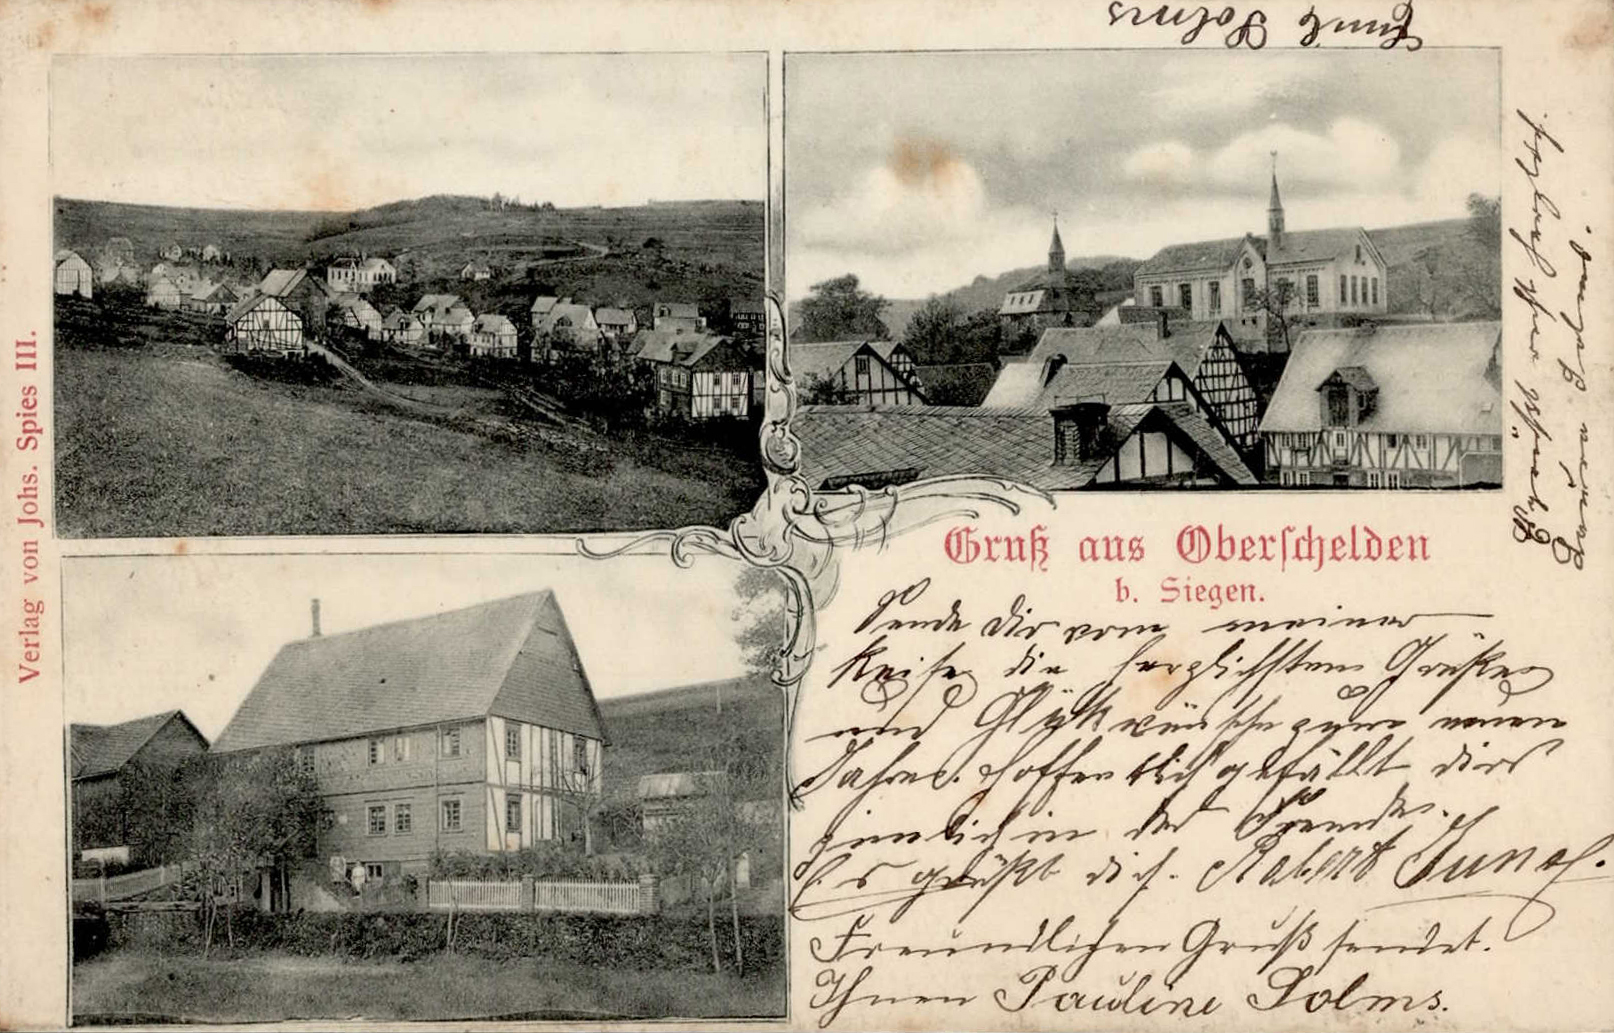 Emil Solms
Verlag von Johs. Spies III.
Gruß aus Oberschelden
b. Siegen.
Sende Dir vom meiner
Reise die herzlichsten Grüße
und Glükwünsche zum neuen
Jahre. Hoffentlich gefällt dirs
zimlich in der Fremde.
Es grüßt dich. Robert Jung.
Freundlichen Gruß sendet.
Ihnen Pauline Solms.